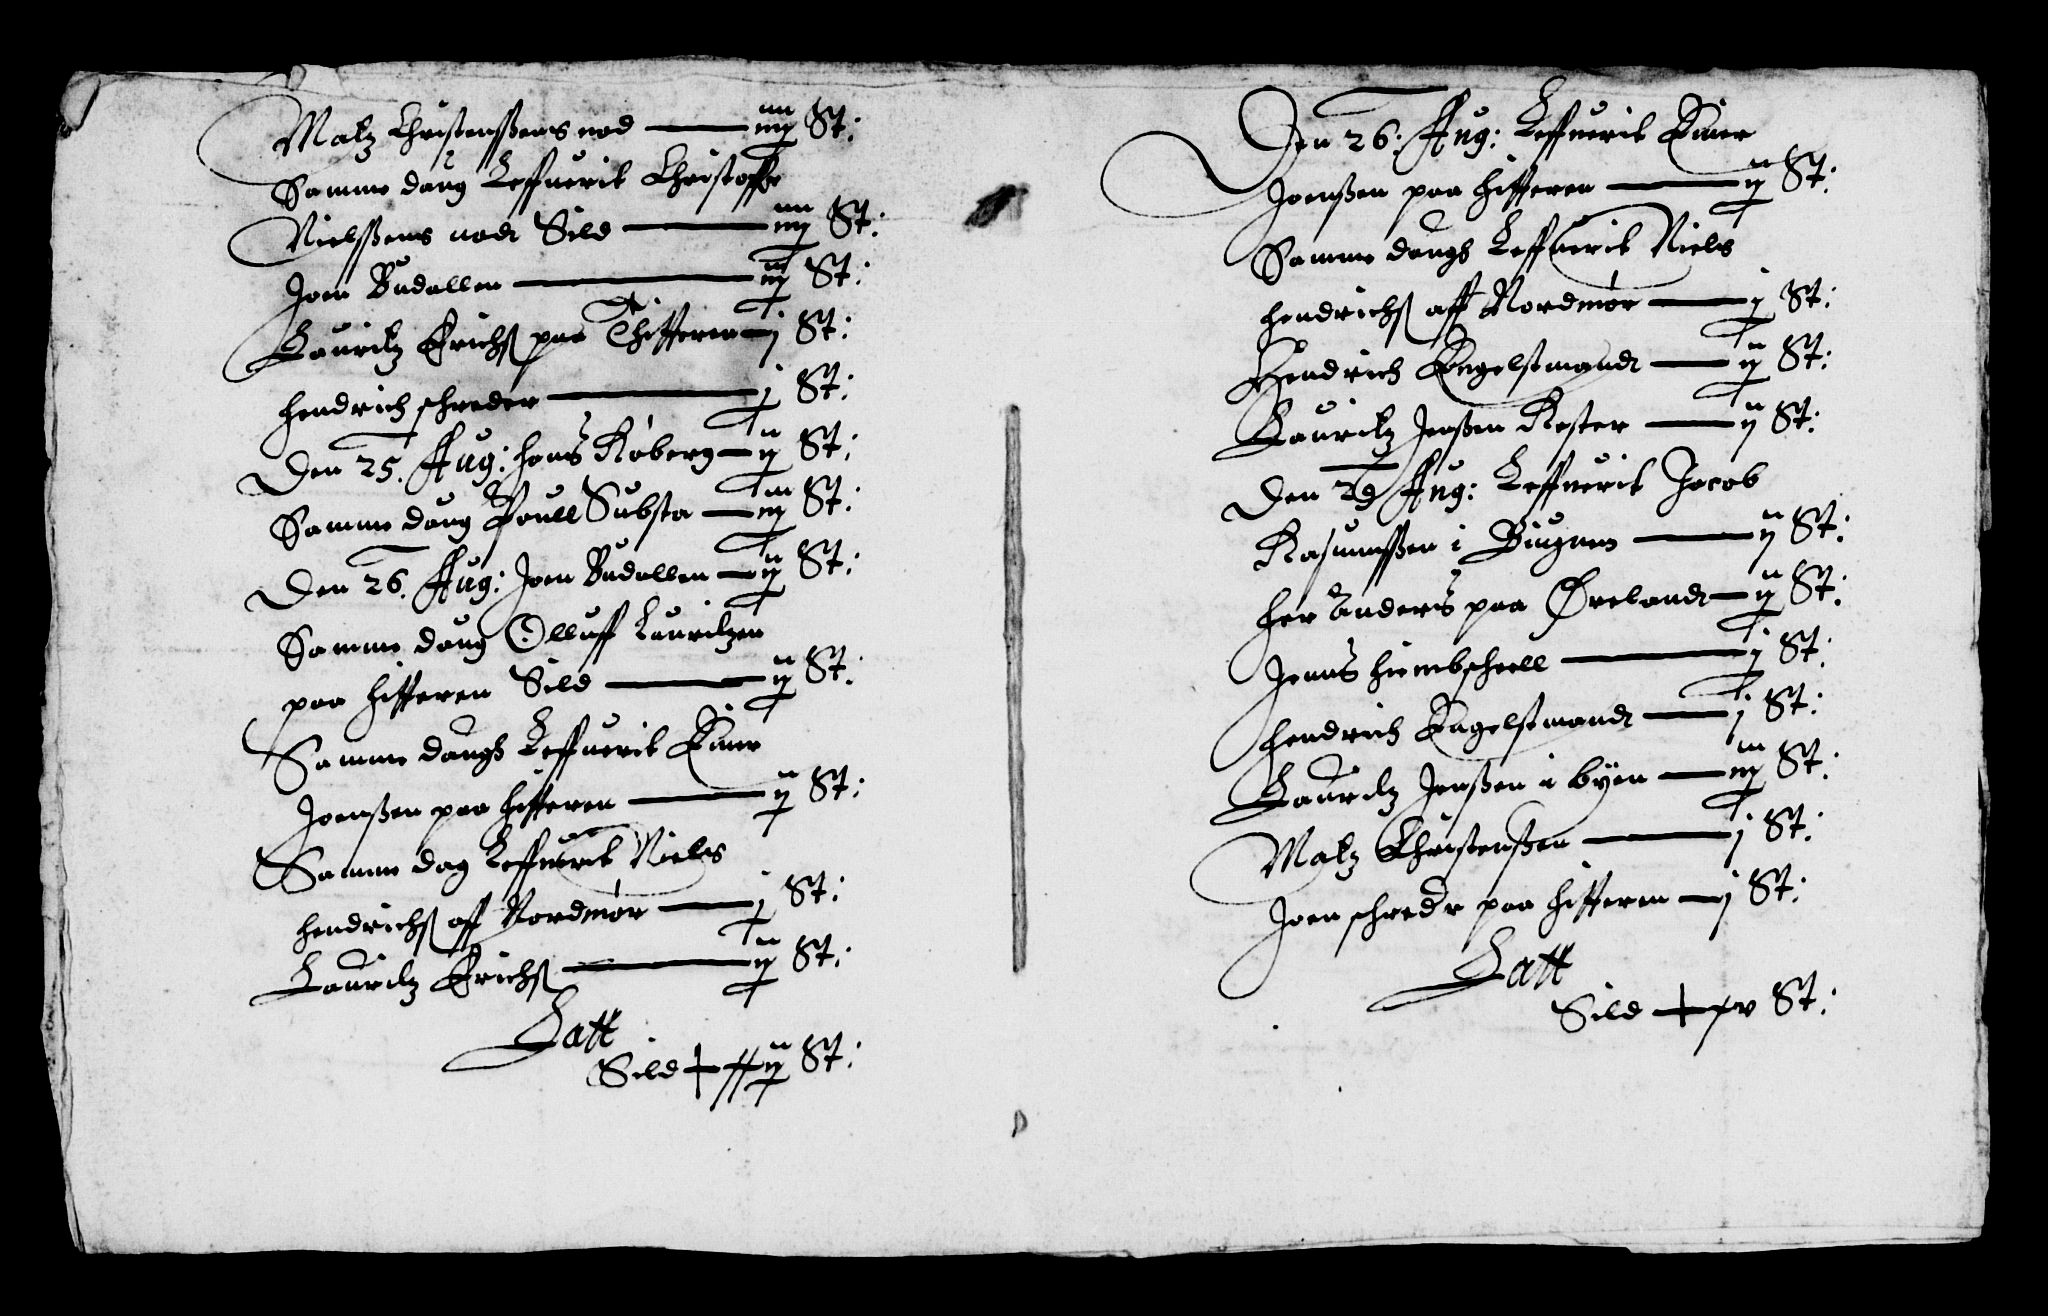 Matz Christenssens nod — iiij St:
Samme daug Leffuerit Christoffer
Nielssens nodt Sild — iiij St:
Joen Budallen — iij St:
Lauritz Erichs paa Hitteren — j St:
Hendrich schreder — j St:
Den 25. Aug: Hans Roberg — ij St:
Samme daug Poull Substa — iij St:
Den 26. Aug: Joen Budallen — ij St:
Samme daug Olluff Lauritzen
paa Hitteren Sild — ij St:
Samme daugh Leffuerit Einer
Joenssen paa Hitteren — ij St:
Samme dag Leffuerit Niels
Hendrichs aff Nordmør — j St:
Lauritz Erichs — ij St:
Latt
Sild — xxij St:
Den 26. Aug: Leffuerit Einer
Joenssen paa Hitteren — ij St:
Samme daugh Leffuerit Niels
Hendrichs aff Nordmør — j St:
Hendrich Engelstmandt — ij St:
Lauritz Jenssen Rester — ij St:
Den 29 Aug: Leffuerit Jacob
Rasmussen i Biugnen — ij St:
Her Anders paa Ørelandt — ij St:
Jenns — j St:
Hendrich Engelstmandt — j St:
Lauritz Jenssen i byen — iij St:
Matz Christenssen — j St:
Joen schredr paa Hitteren — j St:
Latt
Sild — xv St: